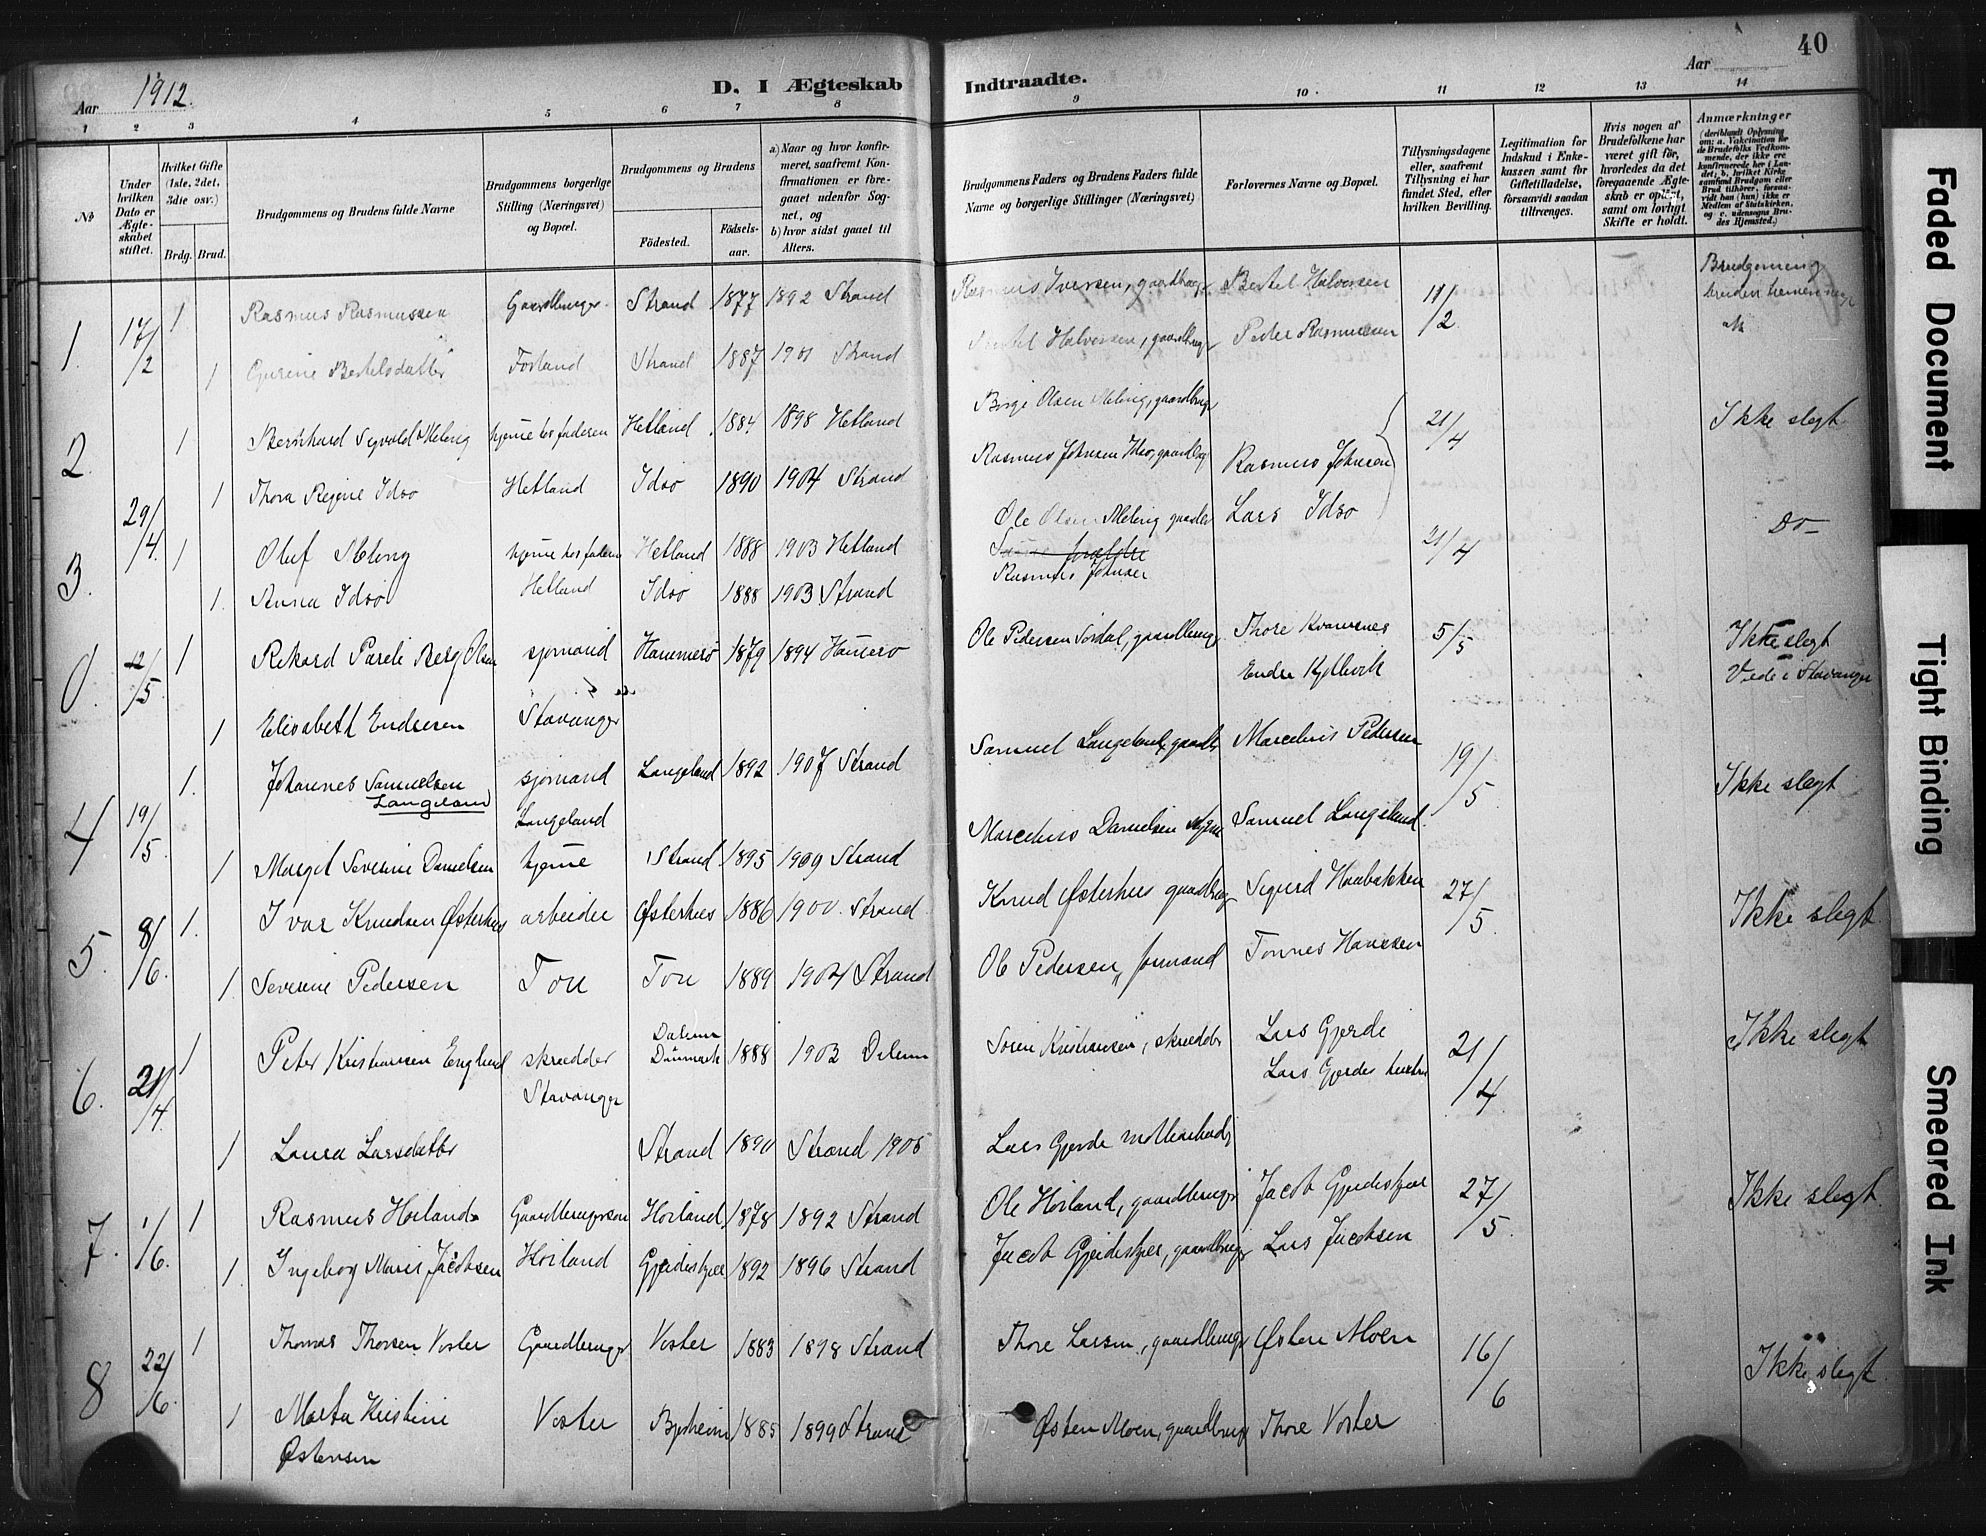 Aar 1912.
D. I Ægteskab Indtraadte.
Aar
40
1 2 3 4 5 6 7 8 9 10 11 12 13 14
No
Under hvilken Dato er Ægteskabet stiftet.
Hvilket Gifte (1ste, 2det, 3die osv.)
Brdg. Brud.
Brudgommens og Brudens fulde Navne
Brudgommens borgerlige Stilling (Næringsvei) og Bopæl.
Brudgommens og Brudens
Födested. Födselsaar.
a) Naar og hvor konfirmeret, saafremt Konfirmationen er foregaaet udenfor Sognet, og
b) hvor sidst gaaet til Alters.
Brudgommens Faders og Brudens Faders fulde Navne og borgerlige Stillinger (Næringsvei)
Forlovernes Navne og Bopæl.
Tillysningsdagene eller, saafremt Tillysning ei har fundet Sted, efter hvilken Bevilling.
Legitimation for Indskud i Enkekassen samt for Giftetilladelse, forsaavidt saadan tiltrænges.
Hvis nogen af Brudefolkene har været gift för, hvorledes da det foregaaende Ægteskab er oplöst, samt om lovligt Skifte er holdt.
Anmærkninger
1. 17/2 1 Rasmus Rasmussen Gaardbruger Strand 1877 1892 Strand Rasmus Iversen, gaardbruger Bertel Halvorsen 11/2 Brudgommen og
1 Gurine Bertelsdatter Forland Strand 1887 1901 Strand Bertel Halvorsen, gaardbruger Peder Rasmussen
2. 29/4 1 Bernhard Sigvald Meling hjeme hos faderen Hetland 1884 1898 Hetland Børge Olsen Meling, gaardbruger 21/4 Ikke slegt
1 Thora Regine Idsø Hetland Idsø 1890 1904 Strand Rasmus Johnsen Idsø, gaardbr Rasmus Johnsen
Lars Idsø
3. 1 Oluf Meling hjeme hos faderen Hetland 1888 1903 Hetland Ole Olsen Meling gaardbr 21/4 Do
1. Anna Idsø Hetland Idsø 1888 1903 Strand Rasmus Johnsen
0. 12/5 1 Rikard Pareli Berg Olsen sjømand Hammerø 1879 1894 Hamerø Ole Pedersen Sørdal, gaardbruger Thore Kvarnes 5/5 Ikke slegt
Endre Kjillevik Viede i Stavanger
1 Elisabeth Endresen Stavanger
4 19/5 1. Johannes Samuelsen Langeland sjømand Langeland 1892 1907 Strand Samuel Langeland, gaardbr Marcelius Pedersen 19/5 Ikke slegt
Langeland
1 Margit Severine Danielsen hjeme Strand 1895 1909 Strand Marcelius Danielsen Samuel Langeland
5. 8/6. 1. Ivar Knudsen Østerhus arbeider Østerhus 1886 1900 Strand Knud Østerhus gaardbruger Sigurd Haabakken 27/5 Ikke slegt
1 Severine Pedersen Tou Tou 1889 1904 Strand Ole Pedersen, formand Tønnes Hansen
6. 21/4 1 Peter Kristiansen Englund skrædder Stavanger Dalum Danmark 1888 1903 Dalum Søren Kristiansen, skrædder Lars Gjerde 21/4 Ikke slegt
Lars Gjerdes hustru
1 Laura Larsdatter Strand 1890 Strand 1905 Lars Gjerde
7. 1/6. 1 Rasmus Høiland Gaardbrugersøn Høiland 1878 1892 Strand Ole Høiland, gaardbruger Jacob Gjerdeskjær 27/5 Ikke slegt
1. Ingeborg Marie Jacobsen Høiland 1892 1896 Strand Jacob Gjerdeskjær, gaardbruger Lars Jacobsen
8 22/6 1 Thomas Thorsen Voster Gaardbruger Voster 1883 1898 Strand Thore Larsen, gaardbruger Østen Moen 16/6 Ikke slegt
1 Marta Kristine Østensen Voster Bjørheim 1885 1899 Strand Østen Moen, gaardbruger Thore Voster
Faded Document
Tight Binding
Smeared Ink